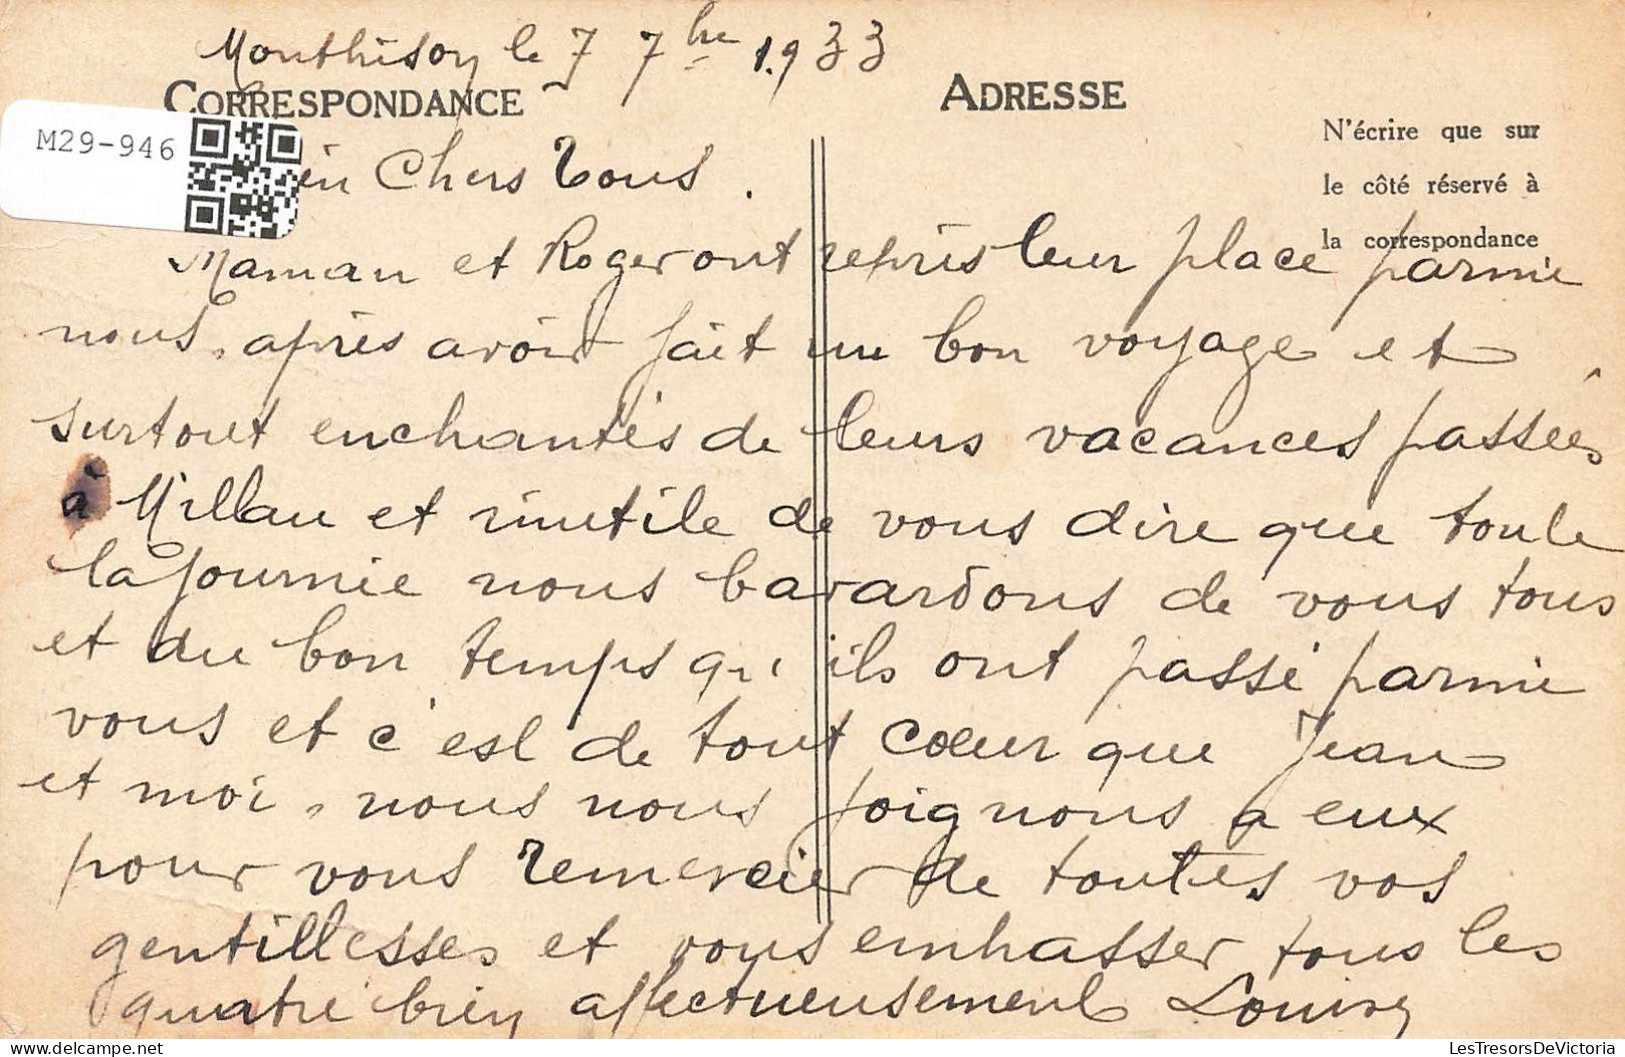 Monthison le 7 7bre 1.933
CORRESPONDANCE
ADRESSE
N'écrire que sur
le côté réservé à
la correspondance
M29-946
ien Chers Tous.
Maman et Roger ont repris leur place parmie
nous, après avoir fait un bon voyage et
surtout enchantés de leurs vacances passées
à Millau et inutile de vous dire que toute
la journée nous bavardons de vous tous
et du bon temps qu'ils ont passé parmie
vous et c'est de tout coeur que Jean
et moi, nous nous joignons a eux
pour vous remercier de toutes vos
gentillesses et vous embrasser tous les
quatre bien affectueusement
LesTresorsDeVictoria